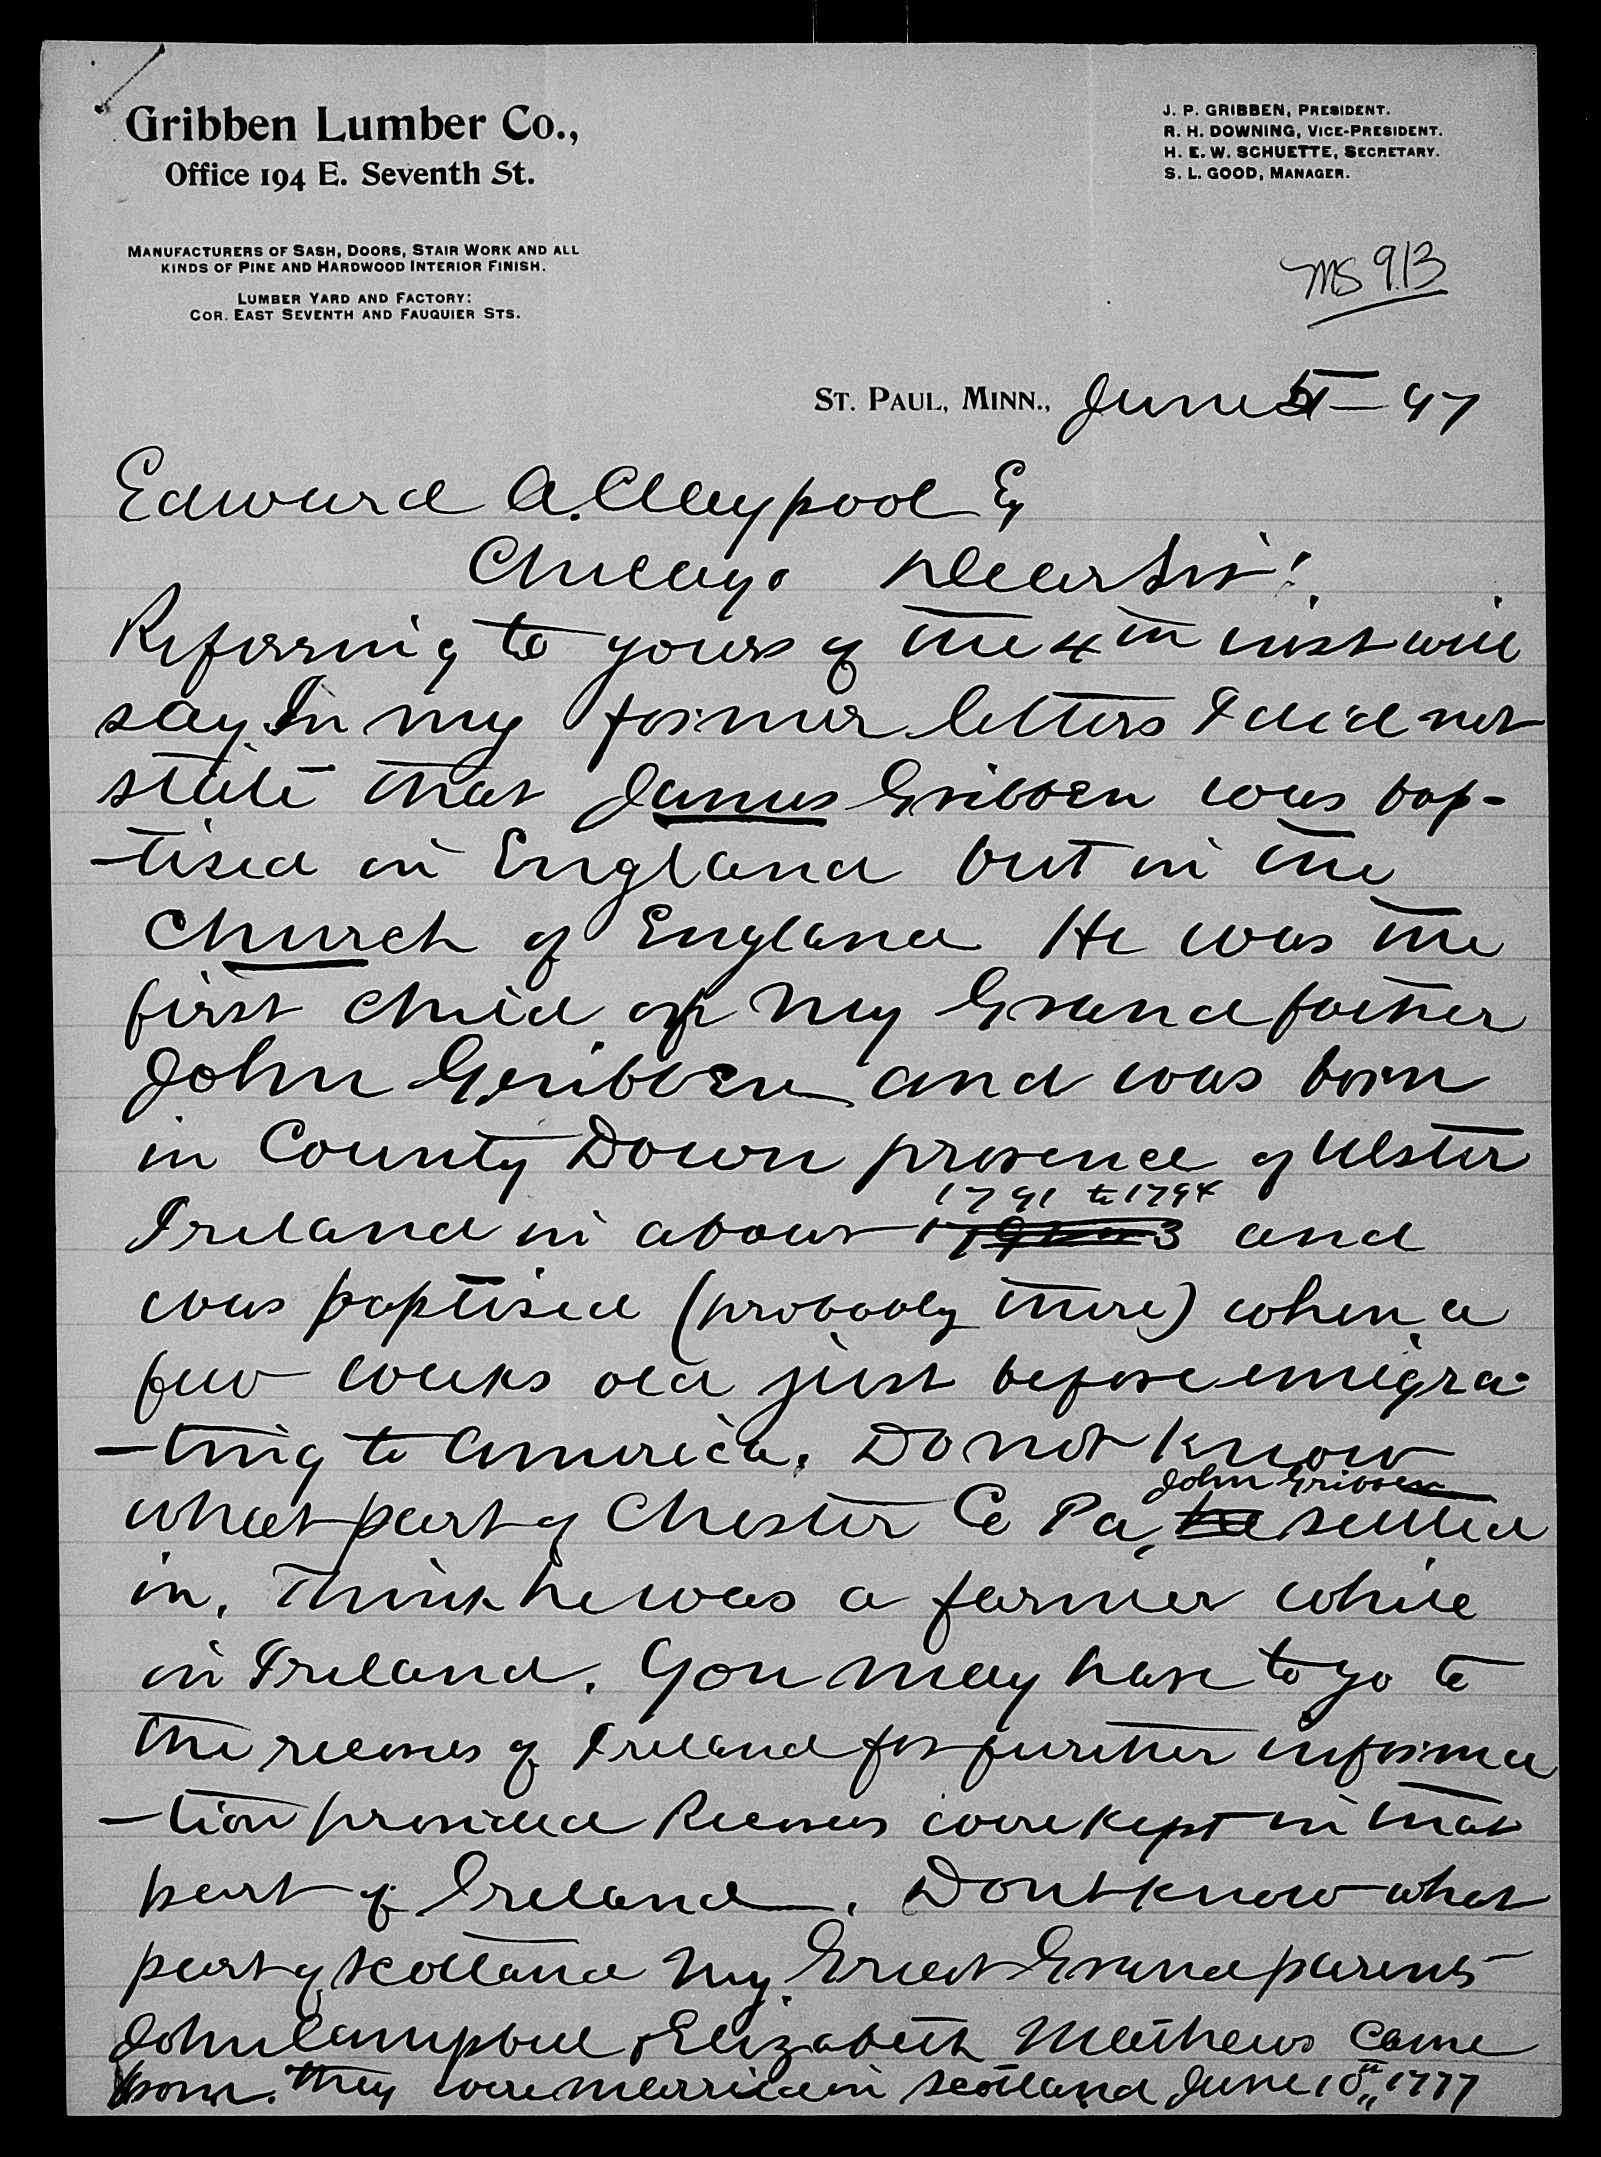 Gribben Lumber Co.,
Office 194 E. Seventh St.
Manufacturers of Sash, Doors, Stair Work and all
kinds of Pine and Hardwood Interior Finish.
Lumber Yard and Factory:
Cor. East Seventh and Fauquier Sts.
J. P. Gribben, President.
R. H. Downing, Vice-President.
H. E. W. Schuette, Secretary.
S. L. Good, Manager.
MS 913
St. Paul, Minn., June 97
Edward A. Claypool Esq
Chicago Dear Sir!
Referring to yours of the 4th inst will
say. In my former letters I did not
state that James Gribben was bap-
-tised in England but in the
Church of England He was the
first child of My Grandfather
John Gribben and was born
in County Down provence of Ulster
1791 to 1794
Ireland in about and
was baptised (probably there) when a
few weeks old just before emigra-
-ting to America. Do not know
John Gribben
what part of Chester Co Pa, he settled
in. Think he was a farmer while
in Ireland. You may have to go to
the records of Ireland for further informa
-tion provided Records were kept in that
part of Ireland. Dont know what
part of Scotland My Great Grand parents
John Campbell & Elizabeth Mathews came
from. They were married in Scotland June 10th, 1777